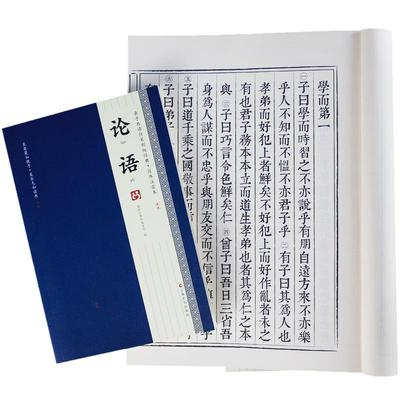 學而第一
㊀子曰學而時習之不亦説乎有朋自遠方來不亦樂
乎人不知而不愠不亦君子乎㊁有子曰其爲人也
孝弟而好犯上者鮮矣不好犯上而好作亂者未之
有也君子務本本立而道生孝弟也者其爲仁之本
與㊂子曰巧言令色鮮矣仁㊃曾子曰吾日三省吾
身爲人謀而不忠乎與朋友交而不信乎
㊄子曰道千乘之國敬事而
㊅子曰弟子
论语